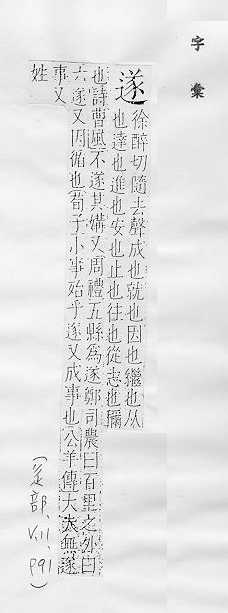 字彙
遂
徐醉切隨去聲成也就也因也繼也从
也達也進也安也止也往也從志也稱
也詩曹風不遂其媾又周禮五縣為遂鄭司農曰百里之外曰
六遂又因循也荀子小事殆乎遂又成事也公羊傳大夫無遂
事又
姓
(辵部, V.11, P91)